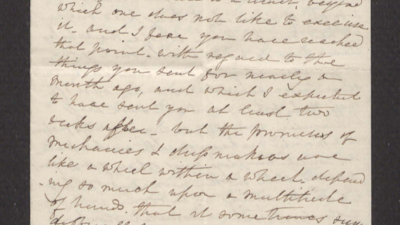 which one does not like to exercise
it. and I fear you have reached
that point. with regard to the
things you sent for nearly a
month ago, and which I expected
to have sent you at least two
weeks after. but the promises of
mechanics & dressmakers are
like a wheel within a wheel, depend
ing so much upon a multitude
of hands. that it sometimes